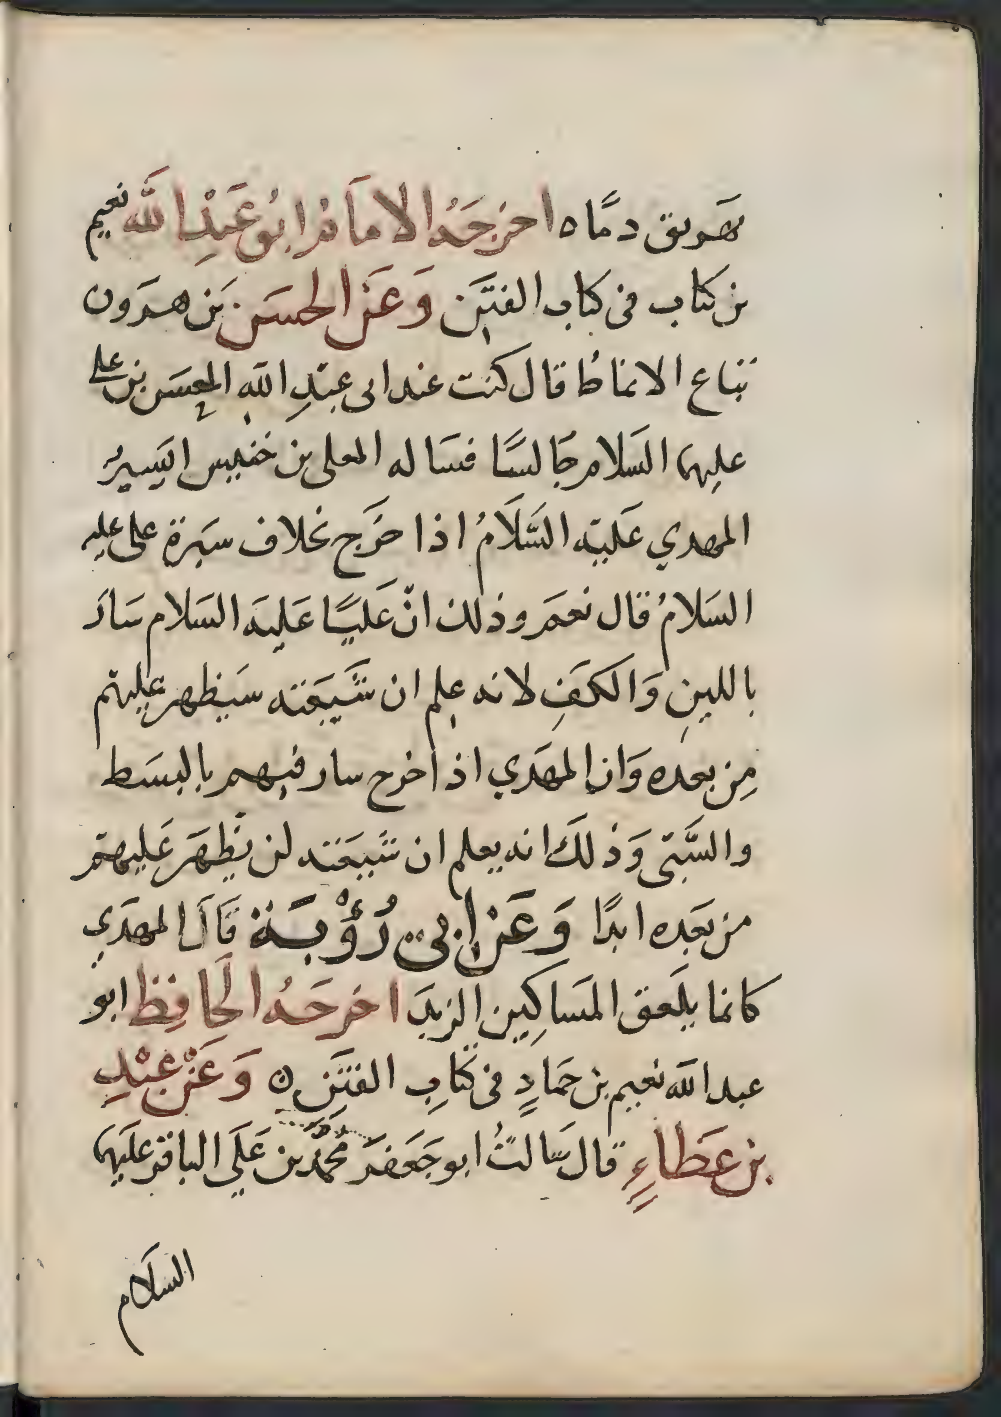 يهريق دمًا ه اخرجَهُ الامامُ ابو عَبْدِ الله نعيم
بن كتاب فى كتاب الفتَن وَعَن الحسَن بَن هـرَون
بَياع الانماط قال كنت عند ابى عبْدِ اللهِ الحسَين بن على
عليهما السَلام جَالسًا فسَاله المعلى بن خنيس ايَسيرُ
المهدي عَليَه السَّلَامُ اذا خرَج بخلاف سيَرة على عليه
السَلامُ قال نعمَ وذلك انّ عَليًا عَليَه السَلام سَارَ
باللينِ وَالكفَفِ لانه علم ان شَيَعَته سَيَظهر عليهم
مِن بعده وَان المهَدي اذا خرج سار فيهم بالبسَط
والسَّبَى وَذلَك انه يعلم ان شَيعَته لن يَظهَر عَليهم
من بَعَده ابدًا وَعَن ابى رُؤْبَة قَالَ المهَدي
كانما يلَعق المسَاكين الزبدَ اخرجَهُ الحَافِظ ابو
عبد الله نعيم بن حمَادٍ فى كتَابِ الفتَن ن وَعَنْ عبْدِ
بن عَطاءٍ قال سَالتُ ابو جَعَفَر مُحَمَّدَ بن عَلَى الباقر عَليَهما
السلام